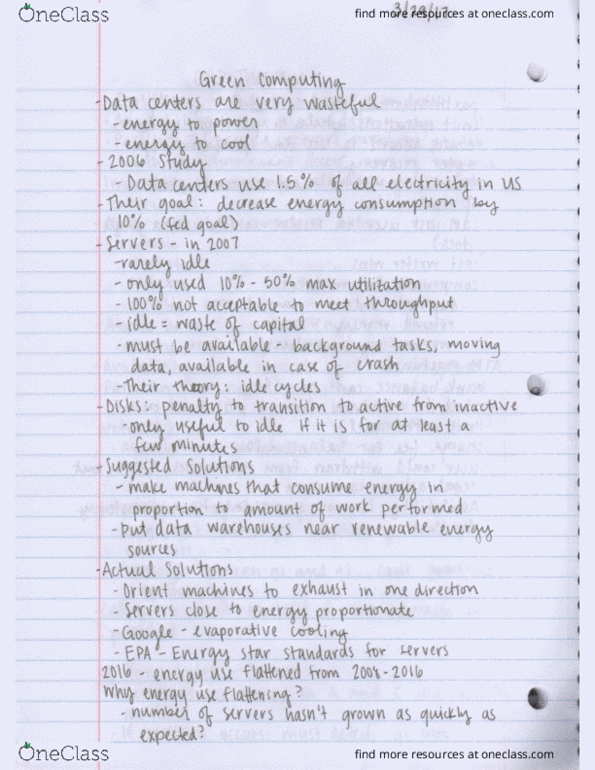 OneClass
find more resources at oneclass.com
3/29/17
Green Computing
- Data centers are very wasteful
- energy to power
- energy to cool
- 2006 Study
- Data centers use 1.5% of all electricity in US
- Their goal: decrease energy consumption by
10% (fed goal)
- Servers - in 2007
- rarely idle
- only used 10% - 50% max utilization
- 100% not acceptable to meet throughput
- idle = waste of capital
- must be available - background tasks, moving
data, available in case of crash
- Their theory: idle cycles
- Disks: penalty to transition to active from inactive
- only useful to idle if it is for at least a
few minutes
- Suggested Solutions
- make machines that consume energy in
proportion to amount of work performed
- Put data warehouses near renewable energy
sources
- Actual Solutions
- Orient machines to exhaust in one direction
- Servers close to energy proportionate
- Google - evaporative cooling
- EPA - Energy star standards for servers
2016 - energy use flattened from 2008-2016
Why energy use flattening?
- number of servers hasn't grown as quickly as
expected?
OneClass
find more resources at oneclass.com